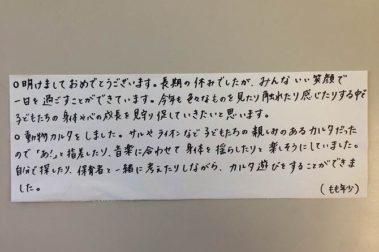 ○明けましておめでとうございます。長期の休みでしたが、みんないい笑顔で
一日を過ごすことができています。今年も色々なものを見たり触れたり感じたりする中で
子どもたちの身体や心の成長を見守り促していきたいと思います。
○動物カルタをしました。サルやライオンなど子どもたちの親しみのあるカルタだった
ので「あ!」と指差したり、音楽に合わせて身体を揺らしたりと楽しそうにしていました。
自分で探したり、保育者と一緒に考えたりしながら、カルタ遊びをすることができま
した。
(もも年少)